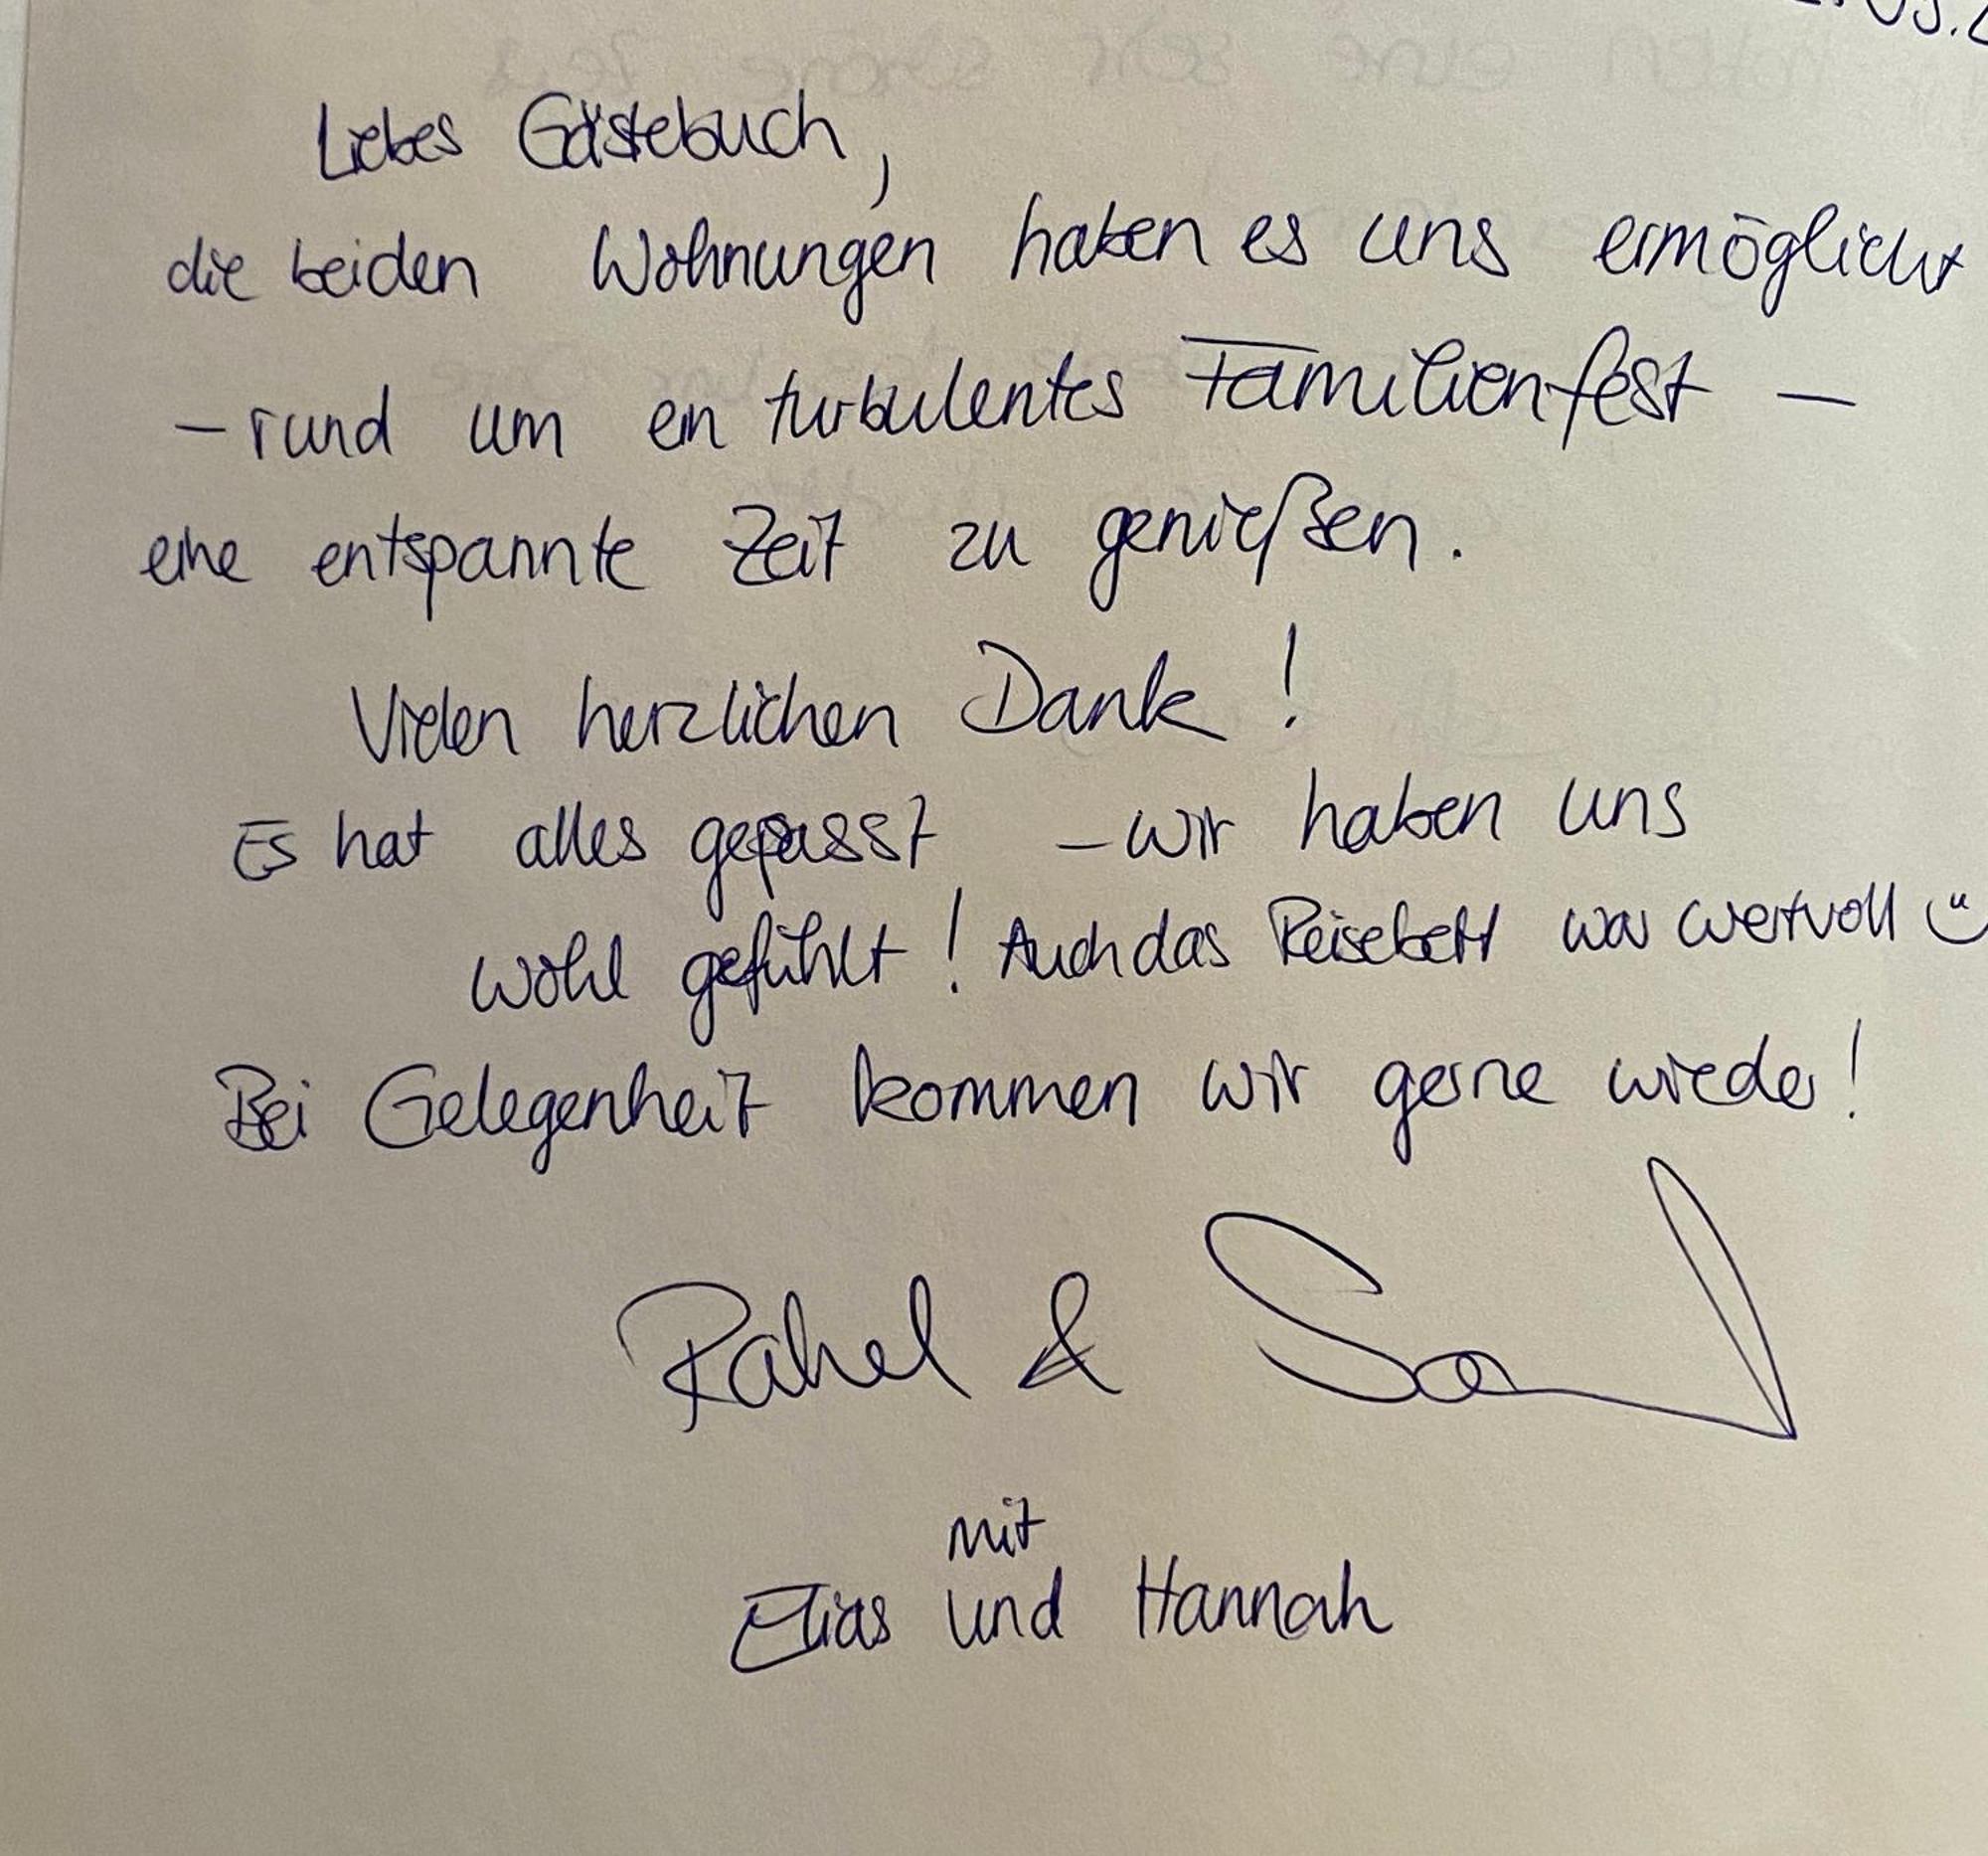 Liebes Gästebuch,
die beiden Wohnungen haben es uns ermöglicht
– rund um ein turbulentes Familienfest –
eine entspannte Zeit zu genießen.
Vielen herzlichen Dank!
Es hat alles gepasst – wir haben uns
wohl gefühlt! Auch das Reisebett war wertvoll ü
Bei Gelegenheit kommen wir gerne wieder!
Rahel &
mit
Elias und Hannah